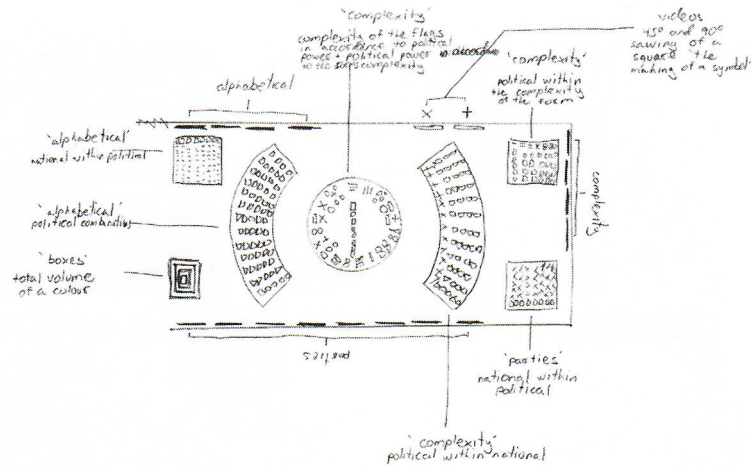 'complexity'
complexity of the flags
in accordance to political
power + political power
to the
complexity
videos
45° and 90°
sawing of a
square 'the
making of a symbol'
'complexity'
political within
the complexity
of the form
alphabetical
x +
'alphabetical'
national within political
'alphabetical'
political combination
'boxes'
total volume
of a colour
complexity
parties
'parties'
national within
political
'complexity'
political within national